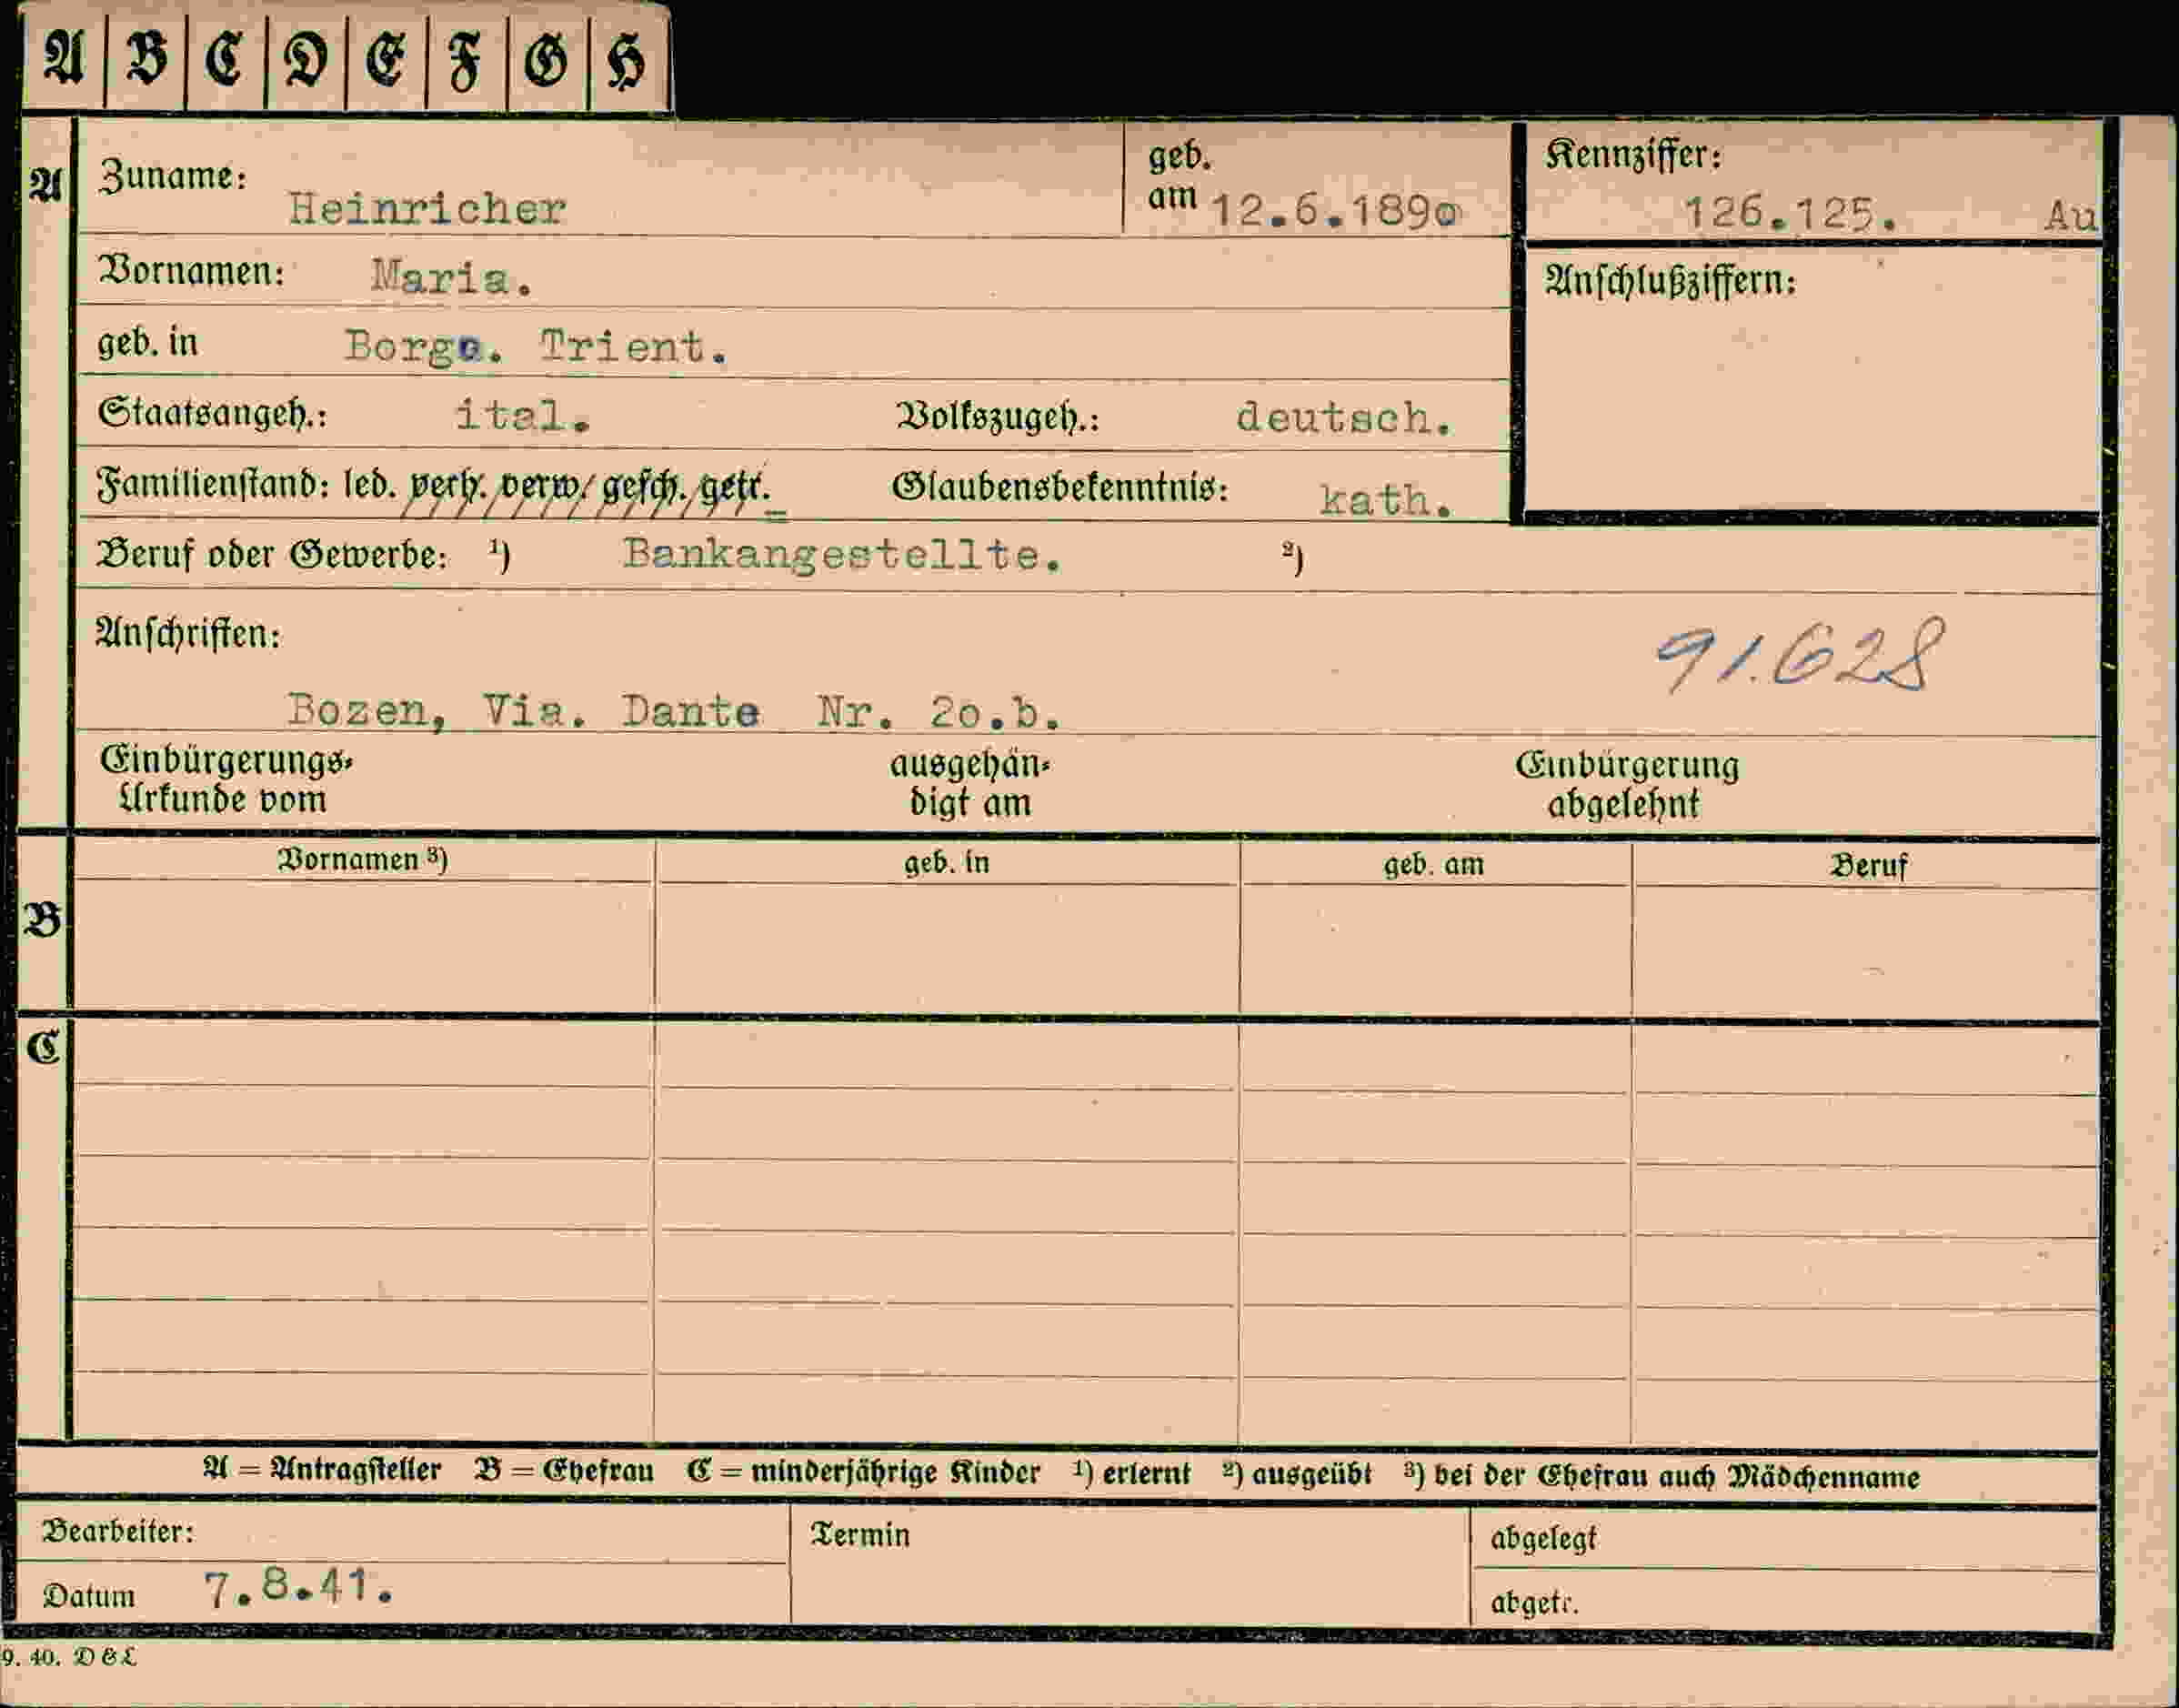 A B C D E F G H
A
Zuname: Heinricher
geb. am 12.6.1890
Kennziffer: 126.125. Au
Vornamen: Maria.
Anschlußziffern:
geb. in Borgo. Trient.
Staatsangeh.: ital. Volkszugeh.: deutsch.
Familienstand: led. verh. verw. gesch. getr. Glaubensbekenntnis: kath.
Beruf oder Gewerbe: ¹) Bankangestellte. ²)
Anschriften:
91.628
Bozen, Via. Dante Nr. 2o.b.
Einbürgerungs-
Urkunde vom
ausgehän-
digt am
Einbürgerung
abgelehnt
Vornamen ³) geb. in geb. am Beruf
B
C
A = Antragsteller B = Ehefrau C = minderjährige Kinder ¹) erlernt ²) ausgeübt ³) bei der Ehefrau auch Mädchenname
Bearbeiter:
Termin
abgelegt
Datum 7.8.41.
abgetr.
9. 40. D & L